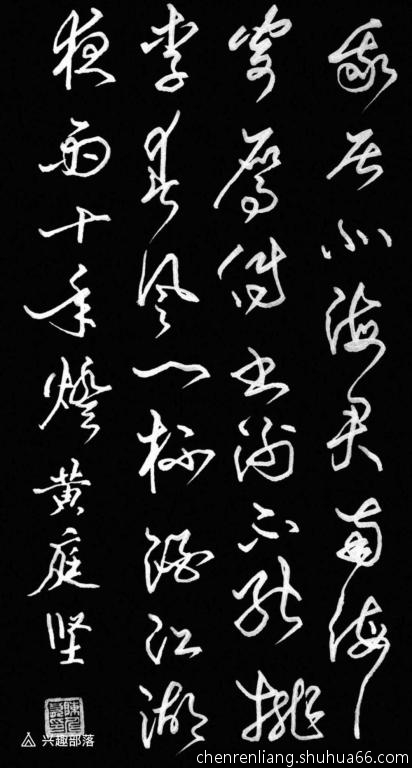 我居北海君南海
寄雁传书谢不能桃
李春风一杯酒江湖
夜雨十年燈黄庭坚
兴趣部落
chenrenliang.shuhua66.com